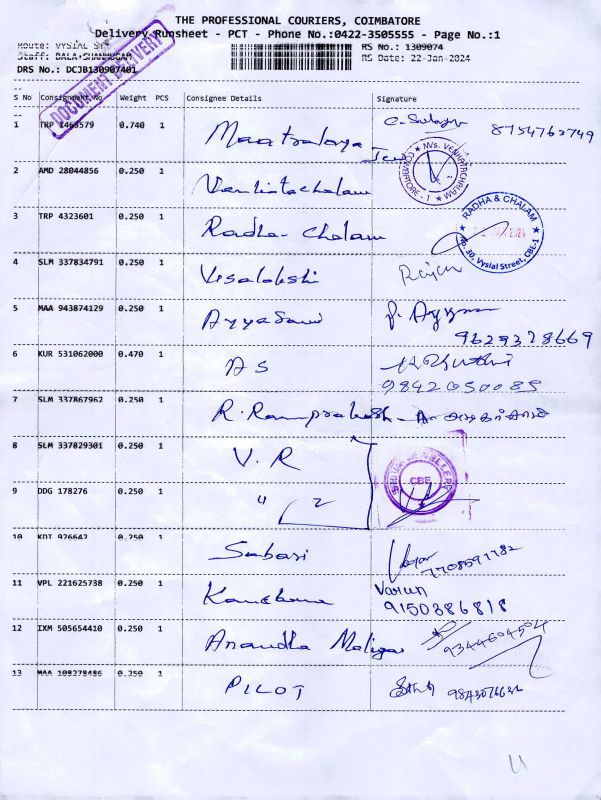 THE PROFESSIONAL COURIERS, COIMBATORE
Delivery Runsheet - PCT - Phone No.:0422-3505555 - Page No.:1
Route: VYSIAL ST
RS No.: 1309074
Staff: BALA SHANMUGAM
RS Date: 22-Jan-2024
DRS No.: DCJB130907401
DOCUMENT DELIVERY
S No Consignment No Weight PCS Consignee Details Signature
1 TRP 1463579 0.740 1 8754763749
2 AMD 28044856 0.250 1 Venkatachalam
M/s. VENKATACHALAM COIMBATORE - 1
3 TRP 4323601 0.250 1 Radha- Chalam
RADHA & CHALAM
No. 30, Vysial Street, CBE-1
4 SLM 337834791 0.250 1 Visalakshi Rajan
5 MAA 943874129 0.250 1 Ayyasami P. Ayyan
9629378669
6 KUR 531062000 0.470 1 AS
9842050085
7 SLM 337867962 0.250 1 R. Ramprakash
8 SLM 337829301 0.250 1 V. R
CBE
9 DDG 178276 0.250 1 " 2
10 KDT 926642 0.250 1 Sabari 7708597782
11 VPL 221625738 0.250 1 Kanchana Varun
9150386818
12 IXM 505654410 0.250 1 Anandha Maligai 9344604504
13 MAA 108278486 0.250 1 PILOT